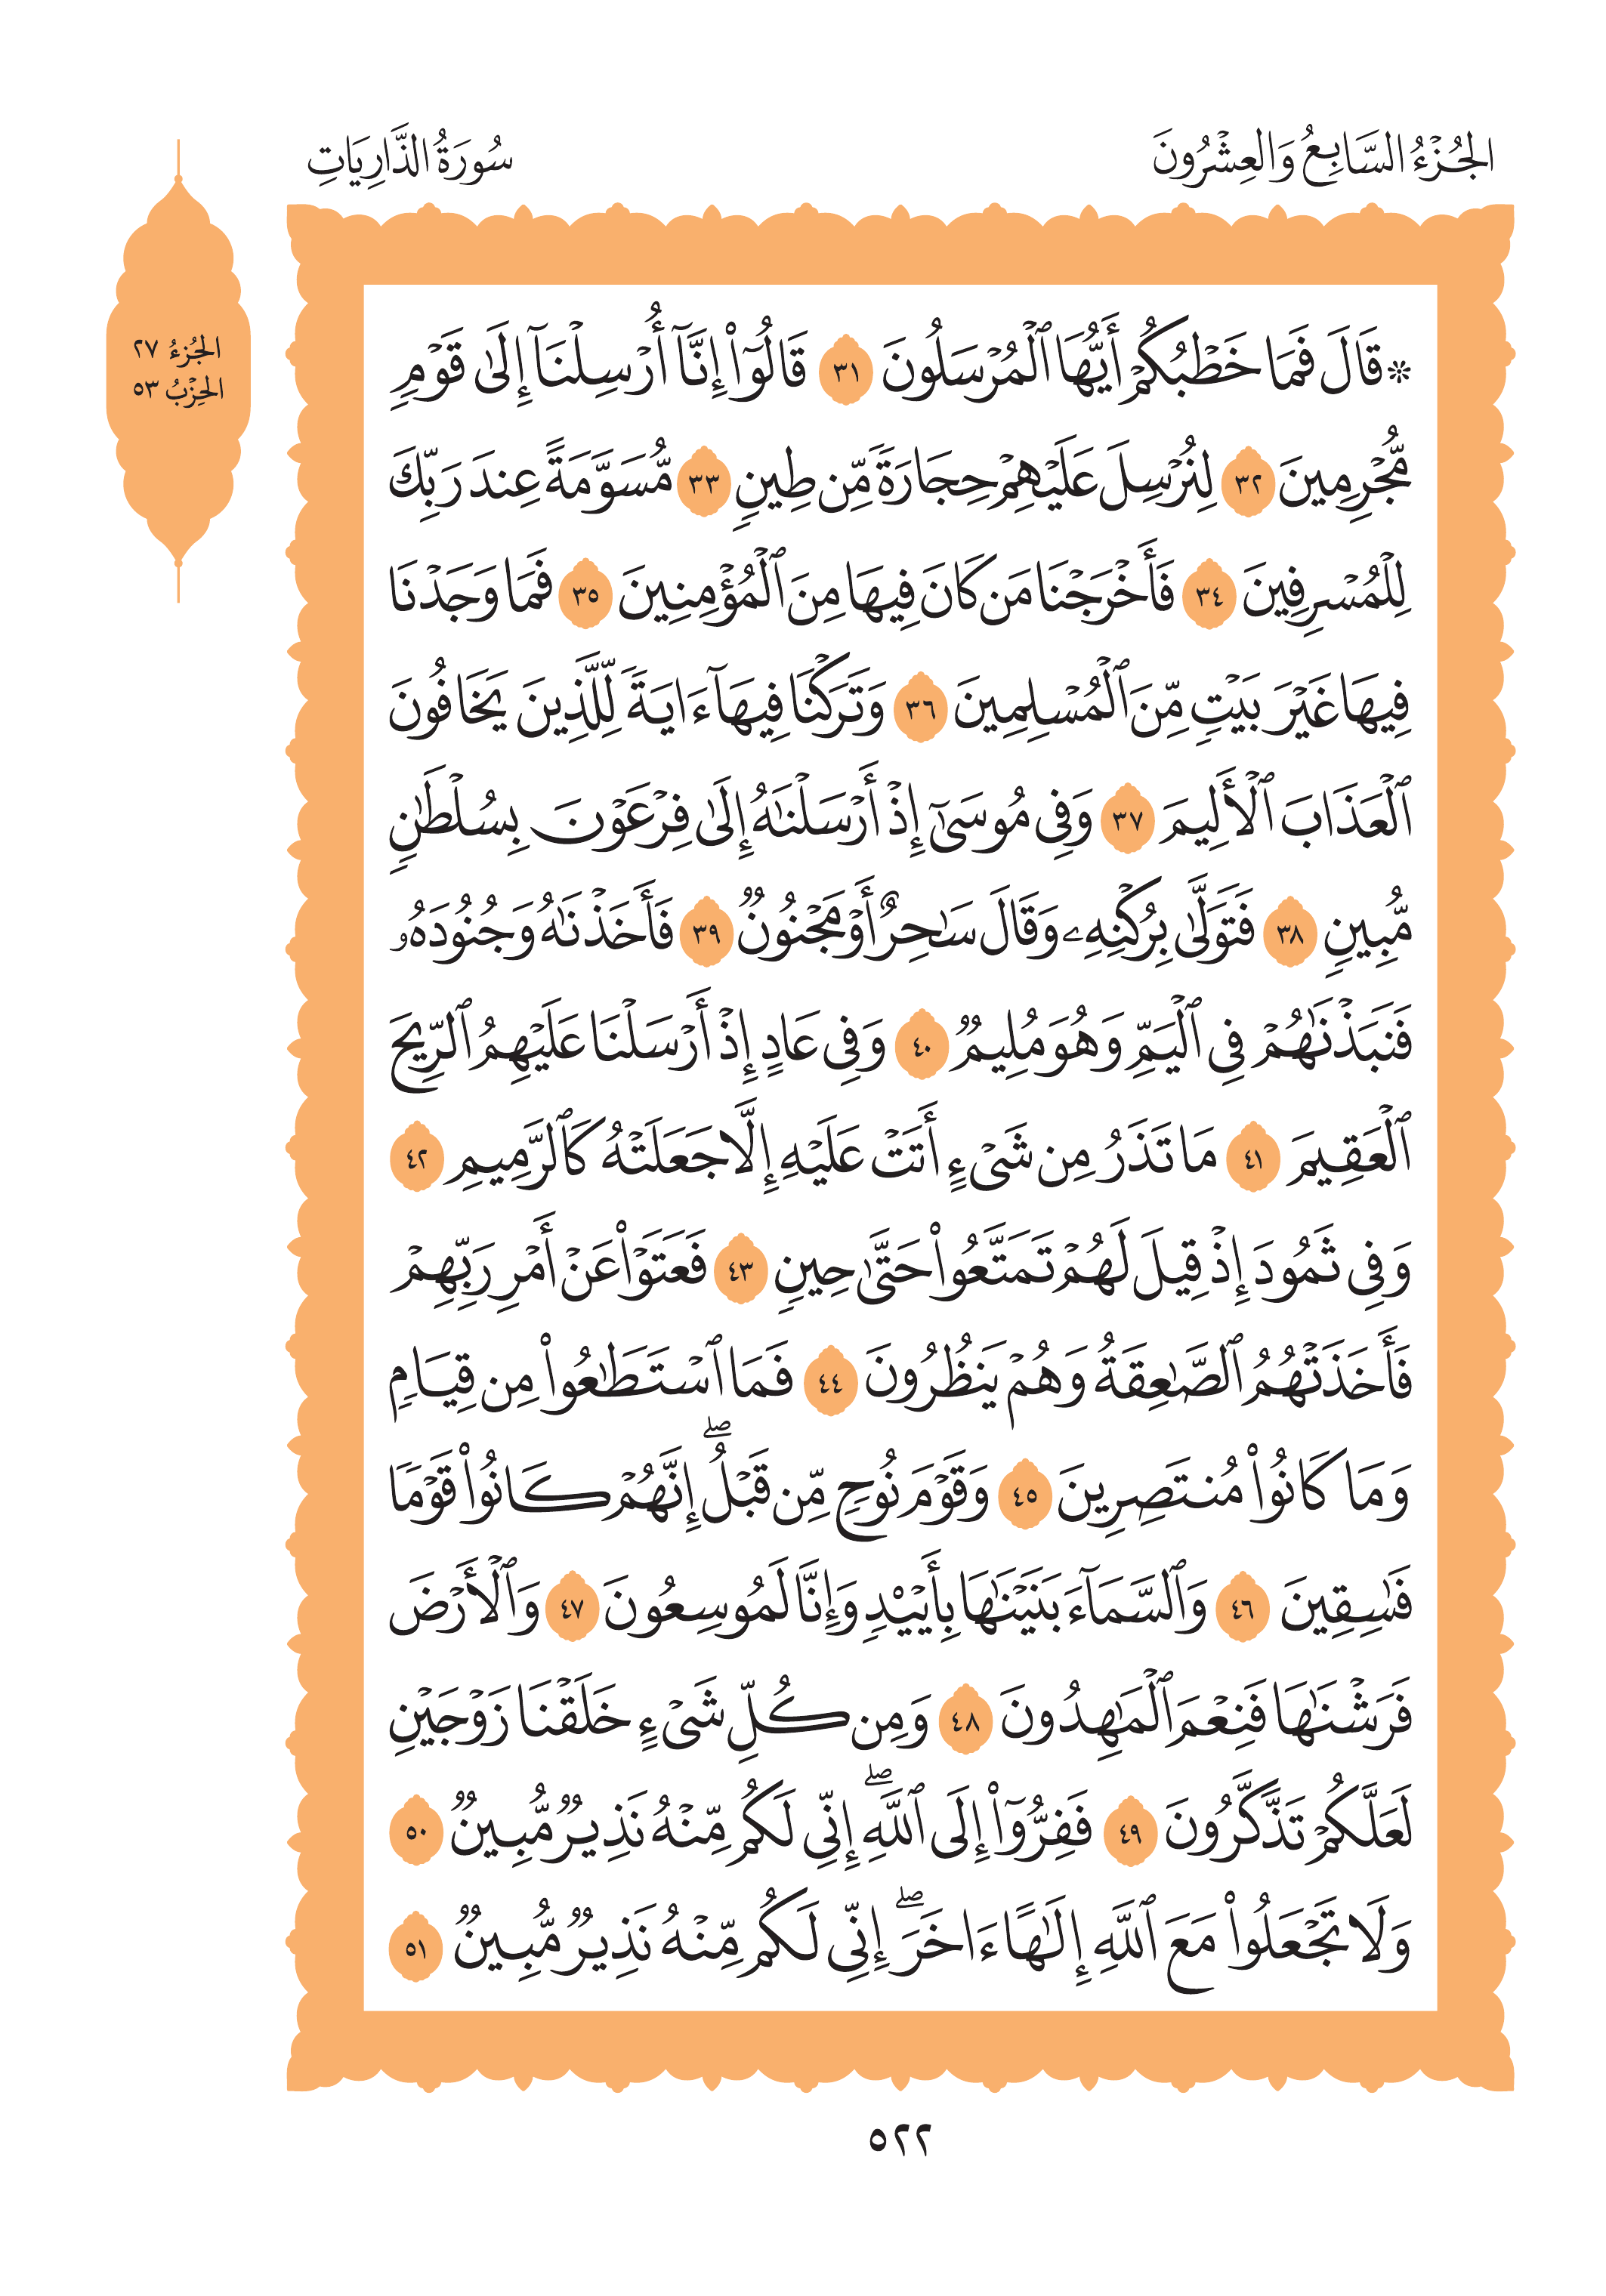 الجُزْءُ السَّابِعُ وَالعِشْرُونَ
سُورَةُ الذَّارِيَاتِ
الجُزءُ ٢٧
الحِزْبُ ٥٣
۞ قَالَ فَمَا خَطۡبُكُمۡ أَيُّهَا ٱلۡمُرۡسَلُونَ ٣١ قَالُوٓاْ إِنَّآ أُرۡسِلۡنَآ إِلَىٰ قَوۡمٖ
مُّجۡرِمِينَ ٣٢ لِنُرۡسِلَ عَلَيۡهِمۡ حِجَارَةٗ مِّن طِينٖ ٣٣ مُّسَوَّمَةً عِندَ رَبِّكَ
لِلۡمُسۡرِفِينَ ٣٤ فَأَخۡرَجۡنَا مَن كَانَ فِيهَا مِنَ ٱلۡمُؤۡمِنِينَ ٣٥ فَمَا وَجَدۡنَا
فِيهَا غَيۡرَ بَيۡتٖ مِّنَ ٱلۡمُسۡلِمِينَ ٣٦ وَتَرَكۡنَا فِيهَآ ءَايَةٗ لِّلَّذِينَ يَخَافُونَ
ٱلۡعَذَابَ ٱلۡأَلِيمَ ٣٧ وَفِي مُوسَىٰٓ إِذۡ أَرۡسَلۡنَٰهُ إِلَىٰ فِرۡعَوۡنَ بِسُلۡطَٰنٖ
مُّبِينٖ ٣٨ فَتَوَلَّىٰ بِرُكۡنِهِۦ وَقَالَ سَٰحِرٌ أَوۡ مَجۡنُونٞ ٣٩ فَأَخَذۡنَٰهُ وَجُنُودَهُۥ
فَنَبَذۡنَٰهُمۡ فِي ٱلۡيَمِّ وَهُوَ مُلِيمٞ ٤٠ وَفِي عَادٍ إِذۡ أَرۡسَلۡنَا عَلَيۡهِمُ ٱلرِّيحَ
ٱلۡعَقِيمَ ٤١ مَا تَذَرُ مِن شَيۡءٍ أَتَتۡ عَلَيۡهِ إِلَّا جَعَلَتۡهُ كَٱلرَّمِيمِ ٤٢
وَفِي ثَمُودَ إِذۡ قِيلَ لَهُمۡ تَمَتَّعُواْ حَتَّىٰ حِينٖ ٤٣ فَعَتَوۡاْ عَنۡ أَمۡرِ رَبِّهِمۡ
فَأَخَذَتۡهُمُ ٱلصَّٰعِقَةُ وَهُمۡ يَنظُرُونَ ٤٤ فَمَا ٱسۡتَطَٰعُواْ مِن قِيَامٖ
وَمَا كَانُواْ مُنتَصِرِينَ ٤٥ وَقَوۡمَ نُوحٖ مِّن قَبۡلُۖ إِنَّهُمۡ كَانُواْ قَوۡمٗا
فَٰسِقِينَ ٤٦ وَٱلسَّمَآءَ بَنَيۡنَٰهَا بِأَيۡيْدٖ وَإِنَّا لَمُوسِعُونَ ٤٧ وَٱلۡأَرۡضَ
فَرَشۡنَٰهَا فَنِعۡمَ ٱلۡمَٰهِدُونَ ٤٨ وَمِن كُلِّ شَيۡءٍ خَلَقۡنَا زَوۡجَيۡنِ
لَعَلَّكُمۡ تَذَكَّرُونَ ٤٩ فَفِرُّوٓاْ إِلَى ٱللَّهِۖ إِنِّي لَكُم مِّنۡهُ نَذِيرٞ مُّبِينٞ ٥٠
وَلَا تَجۡعَلُواْ مَعَ ٱللَّهِ إِلَٰهًا ءَاخَرَۖ إِنِّي لَكُم مِّنۡهُ نَذِيرٞ مُّبِينٞ ٥١
٥٢٢